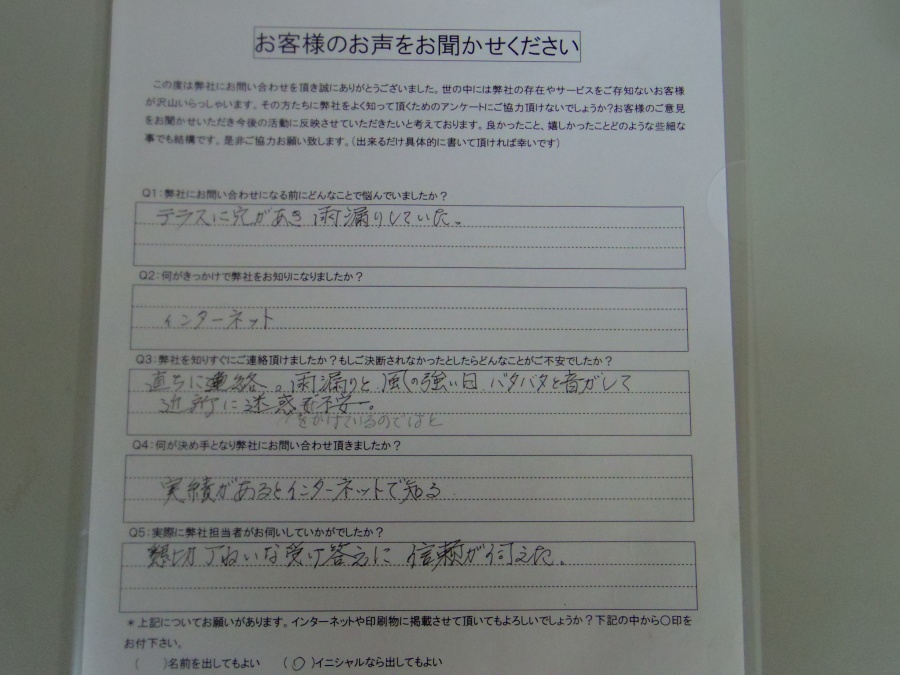 お客様のお声をお聞かせください
この度は弊社にお問い合わせを頂き誠にありがとうございました。世の中には弊社の存在やサービスをご存知ないお客様
が沢山いらっしゃいます。その方たちに弊社をよく知って頂くためのアンケートにご協力頂けないでしょうか?お客様のご意見
をお聞かせいただき今後の活動に反映させていただきたいと考えております。良かったこと、嬉しかったことどのような些細な
事でも結構です。是非ご協力お願い致します。(出来るだけ具体的に書いて頂ければ幸いです)
Q1:弊社にお問い合わせになる前にどんなことで悩んでいましたか?
テラスに穴があき 雨漏りしていた。
Q2:何がきっかけで弊社をお知りになりましたか?
インターネット
Q3:弊社を知りすぐにご連絡頂けましたか?もしご決断されなかったとしたらどんなことがご不安でしたか?
直ちに連絡。雨漏りと風の強い日 バタバタと音がして
近所に迷惑で不安。
をかけているのではと
Q4:何が決め手となり弊社にお問い合わせ頂きましたか?
実績があるとインターネットで知る
Q5:実際に弊社担当者がお伺いしていかがでしたか?
懇切丁ねいな受け答えに 信頼が伺えた。
*上記についてお願いがあります。インターネットや印刷物に掲載させて頂いてもよろしいでしょうか?下記の中から○印を
お付下さい。
( )名前を出してもよい (○)イニシャルなら出してもよい